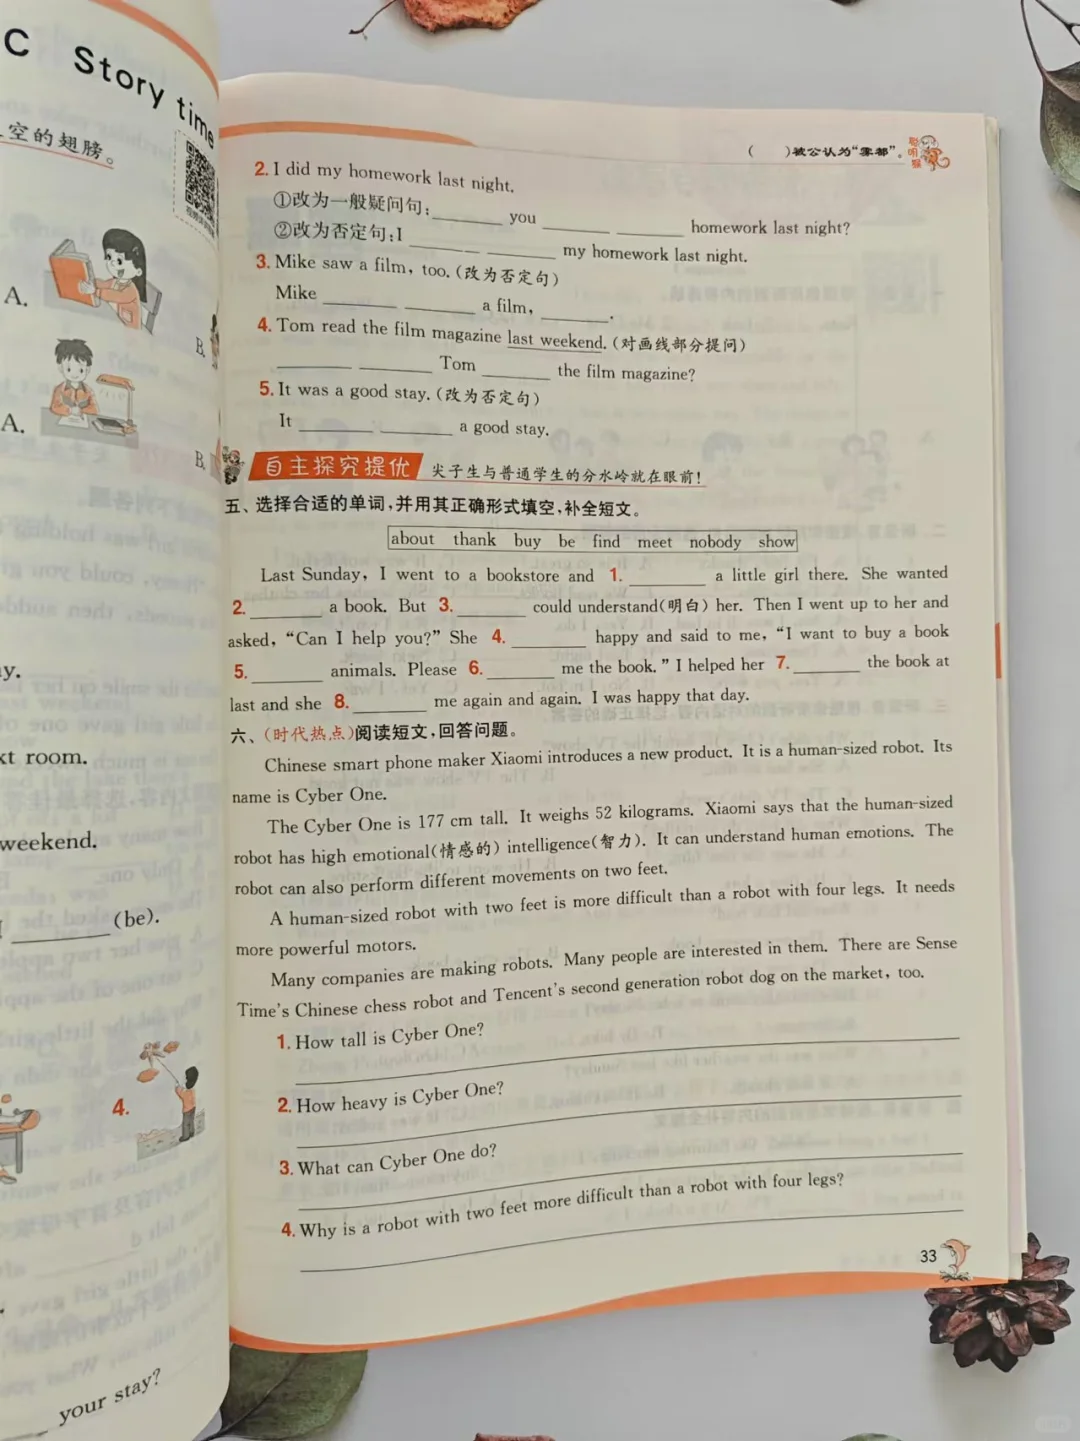 C Story time
空的翅膀。
A.
B.
A.
B.
y.
xt room.
weekend.
(be).
4.
your stay?
( )被公认为“雾都”。
聪明猴
2. I did my homework last night.
①改为一般疑问句:________ you ________ ________ homework last night?
②改为否定句:I ________ ________ my homework last night.
3. Mike saw a film, too. (改为否定句)
Mike ________ ________ a film, ________.
4. Tom read the film magazine last weekend. (对画线部分提问)
________ ________ Tom ________ the film magazine?
5. It was a good stay. (改为否定句)
It ________ ________ a good stay.
自主探究提优 尖子生与普通学生的分水岭就在眼前!
五、选择合适的单词,并用其正确形式填空,补全短文。
about thank buy be find meet nobody show
Last Sunday, I went to a bookstore and 1. ________ a little girl there. She wanted
2. ________ a book. But 3. ________ could understand(明白) her. Then I went up to her and
asked, “Can I help you?” She 4. ________ happy and said to me, “I want to buy a book
5. ________ animals. Please 6. ________ me the book.” I helped her 7. ________ the book at
last and she 8. ________ me again and again. I was happy that day.
六、(时代热点)阅读短文,回答问题。
Chinese smart phone maker Xiaomi introduces a new product. It is a human-sized robot. Its
name is Cyber One.
The Cyber One is 177 cm tall. It weighs 52 kilograms. Xiaomi says that the human-sized
robot has high emotional(情感的) intelligence(智力). It can understand human emotions. The
robot can also perform different movements on two feet.
A human-sized robot with two feet is more difficult than a robot with four legs. It needs
more powerful motors.
Many companies are making robots. Many people are interested in them. There are Sense
Time's Chinese chess robot and Tencent's second generation robot dog on the market, too.
1. How tall is Cyber One?
2. How heavy is Cyber One?
3. What can Cyber One do?
4. Why is a robot with two feet more difficult than a robot with four legs?
33